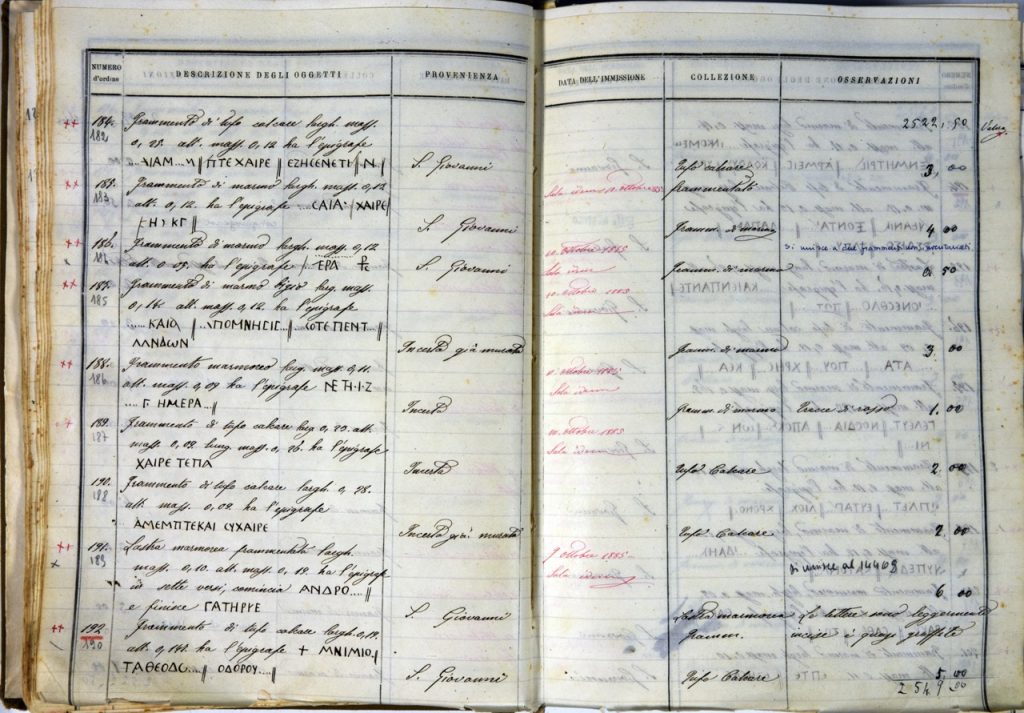 NUMERO d'ordine DESCRIZIONE DEGLI OGGETTI PROVENIENZA DATA DELL'IMMISSIONE COLLEZIONE OSSERVAZIONI
2522,50
184. Frammento di tufo calcare largh. mass.
182 0,25. alt. mass. 0,12 ha l'epigrafe
ΑΙΑΜ..Μ//ΠΤΕ ΧΑΙΡΕ//ΕΖΗϹΕΝΕΤΙ//Ν// S. Giovanni Tufo calcare 3,00
185. Frammento di marmo largh. mass. 0,12 Sala idem 10 ottobre 1885 frammentato
183 alt. 0,12. ha l'epigrafe ....ϹΑΙΑ:/ΧΑΙΡΕ
ΕΗϹΚΓ// S. Giovanni Framm. di marmo 4 00
186. Frammento di marmo largh. mass. 0,12 10 ottobre 1885 Si unisce a due frammenti
alt. 0 09. ha l'epigrafe /ΤΕΡΑ S. Giovanni Sala idem Framm. di marmo 0. 50
187. Frammento di marmo largh. mass. 10 ottobre 1885
185 0,14. alt. mass. 0,12. ha l'epigrafe Sala idem
.... ΚΑΙΟΛ//...ΑΠΟΜΝΗϹΙϹ...//ϹΟΤΕΠΕΝΤ...//
ΛΑΝΔΩΝ Incerta già murata Framm. di marmo 3. 00
188. Frammento marmoreo largh. mass. 0,11. 10 ottobre 1885
186 alt. mass. 0,09. ha l'epigrafe ΝΕΤΗ·Ι·Ζ Sala idem
.... Γ. ΗΜΕΡΑ..// Incerta Framm. di marmo Tracce di rosso 1. 00
189. Frammento di tufo calcare larg 0,20. alt. 10 ottobre 1885
187 mass. 0,09. lung. mass. 0,26. ha l'epigrafe Sala idem
ΧΑΙΡΕ ΤΕΠΑ Incerta Tufo Calcare 2. 00
190. Frammento di tufo calcare largh. 0,28.
188 alt. mass. 0,09. ha l'epigrafe
ΑΜΕΜΠΤΕΚΑΙ ϹΥΧΑΙΡΕ Incerta già murata Tufo Calcare 2. 00
191. Lastra marmorea frammentata largh. 9 ottobre 1885
189 mass. 0,10. alt. mass. 0,19. ha l'epigrafe Sala idem Si unisce al 14409
in sette versi, comincia ΑΝΔΡΟ....// 6. 00
e finisce ΓΑΤΗΡΡΕ S. Giovanni Lastra marmorea Le lettere sono leggermente
192 Frammento di tufo calcare largh. 0,19. framm. incise e quasi graffite
190 alt. 0,14. ha l'epigrafe + ΜΝΙΜΙΟ//
ΤΑΘΕΟΔΟ....// ΟΔΟΡΟΥ...// S. Giovanni Tufo Calcare 5. 00
2549 00